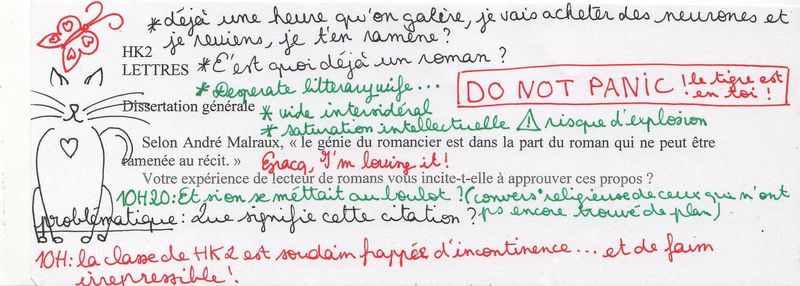 *déjà une heure qu'on galère, je vais acheter des neurones et
je reviens, je t'en ramène?
HK2
LETTRES *C'est quoi déjà un roman?
*Desperate litterarywife...
DO NOT PANIC! le tigre est
en toi!
Dissertation générale *vide intersidéral
*saturation intellectuelle ⚠ risque d'explosion
Selon André Malraux, « le génie du romancier est dans la part du roman qui ne peut être
ramenée au récit. » Gracq, I'm loving it!
Votre expérience de lecteur de romans vous incite-t-elle à approuver ces propos ?
10H20: Et si on se mettait au boulot? (convers° religieuse de ceux qui n'ont
ps encore trouvé de plan)
problématique: Que signifie cette citation?
10H: la classe de HK2 est soudain frappée d'incontinence... et de faim
irrepressible!